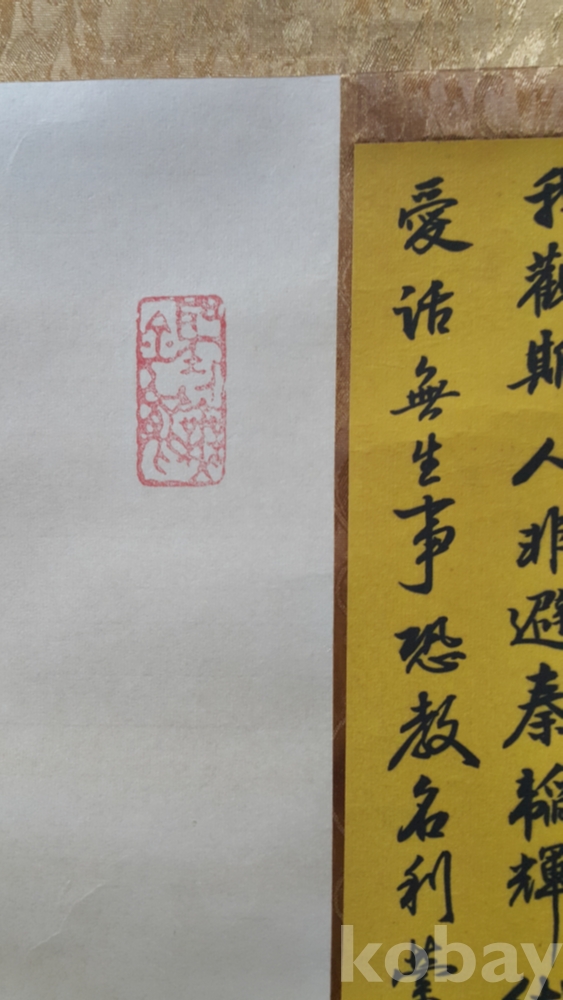 我觀斯人非避秦韜輝
愛話無生事恐教名利
kobay